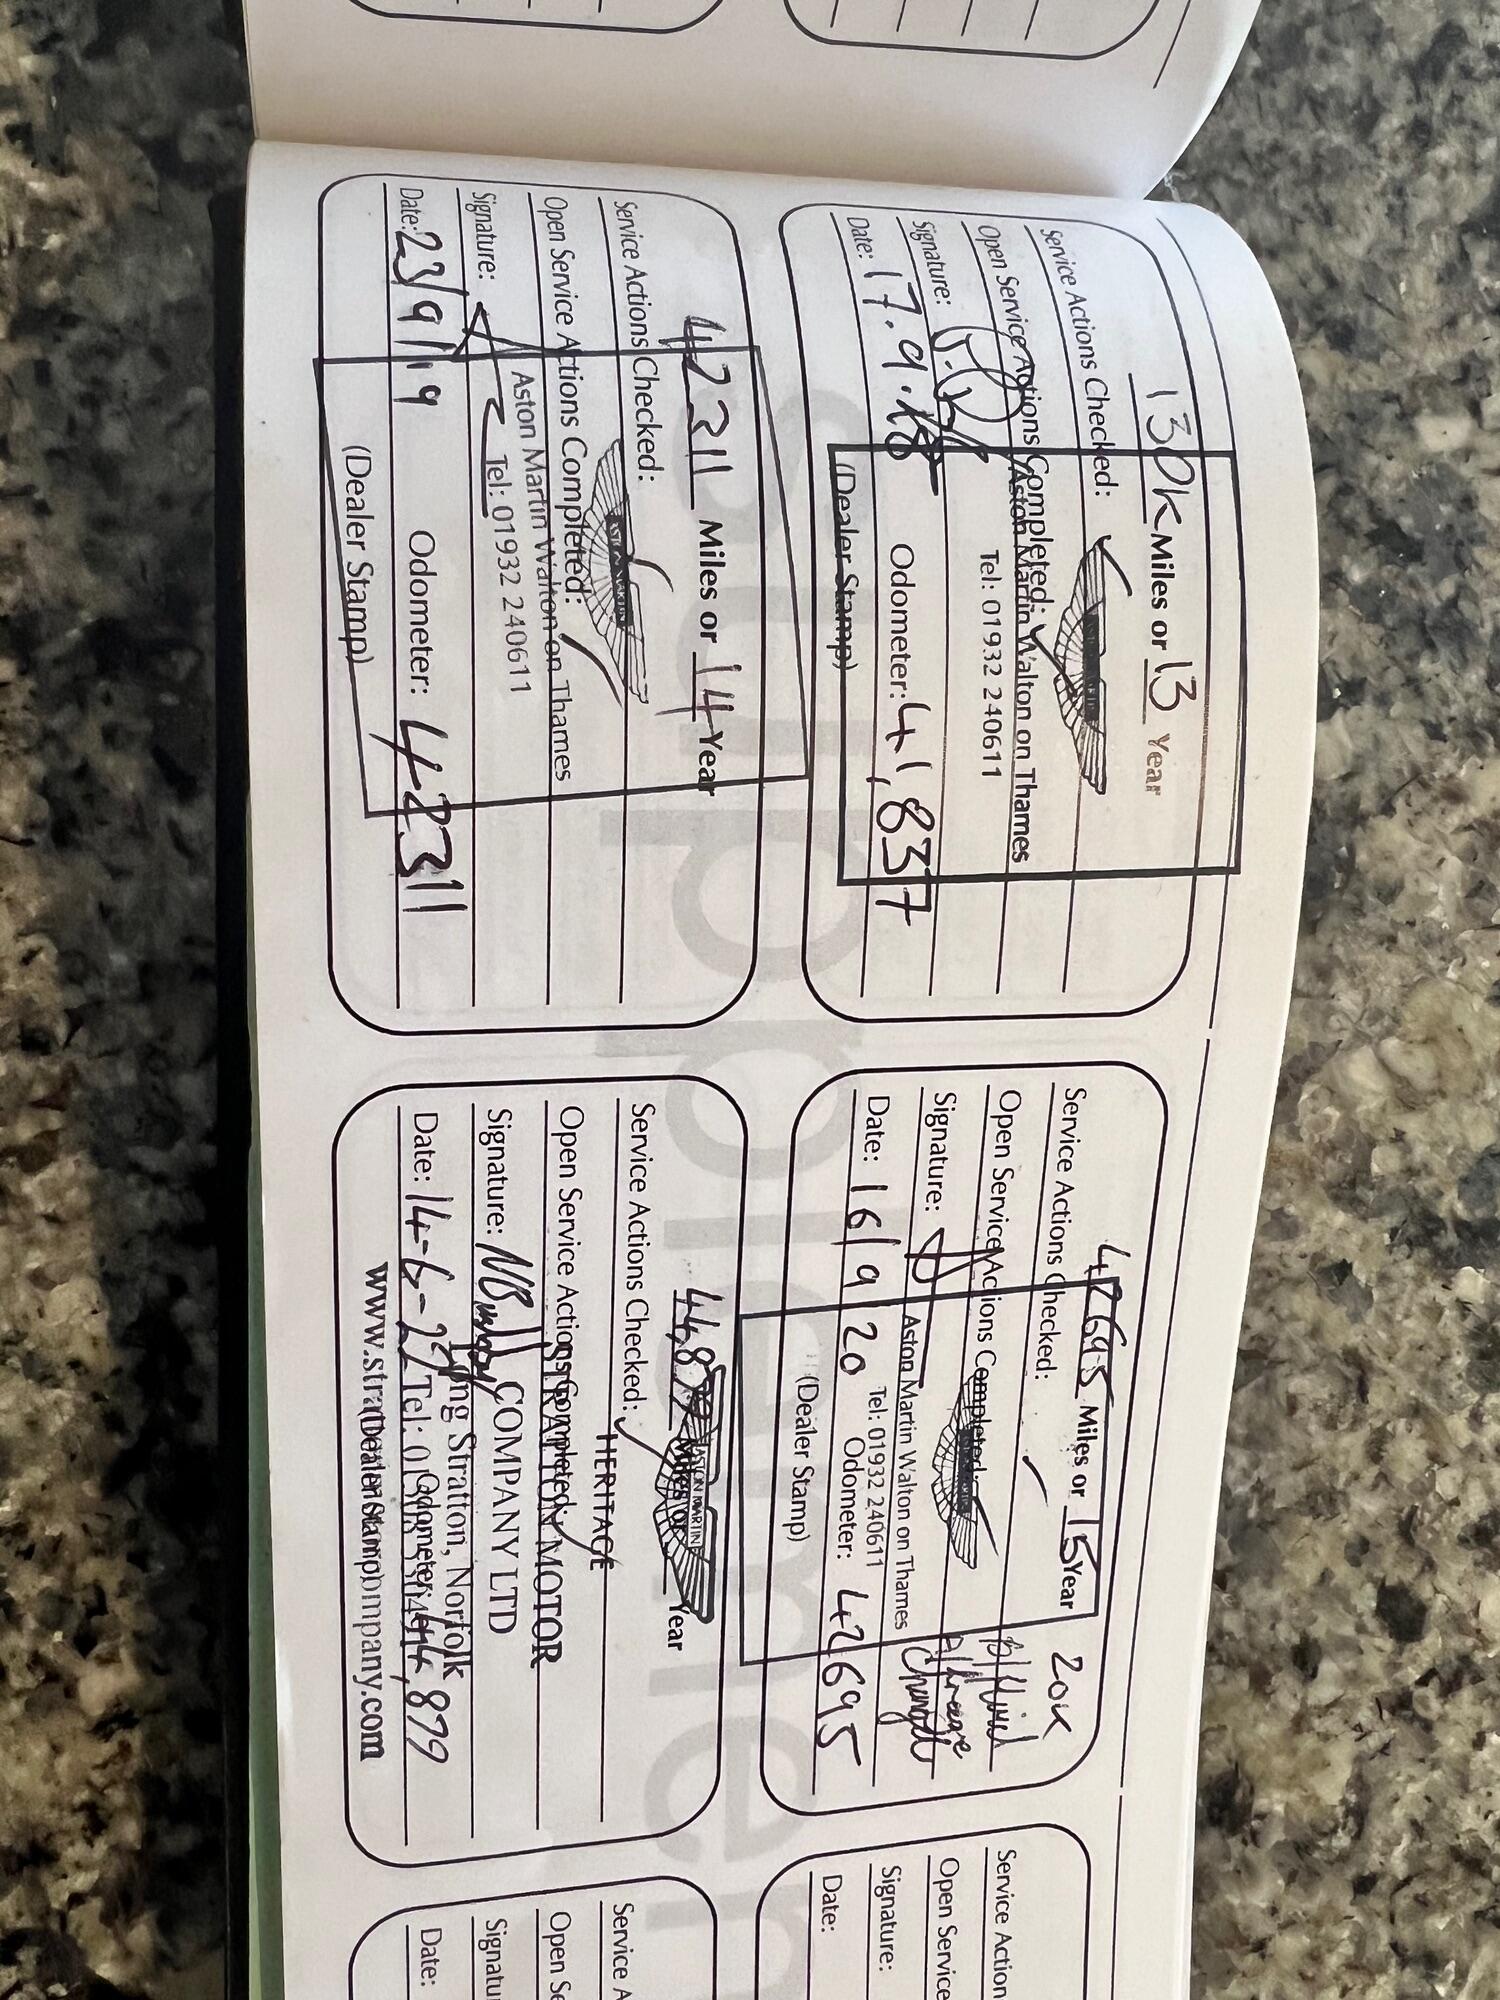 130K Miles or 13 Year
Service Actions Checked:
Open Service Actions Completed:
Aston Martin Walton on Thames
Tel: 01932 240611
Signature:
Date: 17.9.18 Odometer: 41,837
(Dealer Stamp)
42695 Miles or 15 Year
20K
Service Actions Checked:
Open Service Actions Completed:
b/fluid
Change
Signature:
Aston Martin Walton on Thames
Tel: 01932 240611
Date: 16/9/20 Odometer: 42695
(Dealer Stamp)
Service Action
Open Service
Signature:
Date:
42311 Miles or 14 Year
Service Actions Checked:
ASTON MARTIN
Open Service Actions Completed:
Aston Martin Walton on Thames
Signature:
Tel: 01932 240611
Date: 23/9/19 Odometer: 42311
(Dealer Stamp)
44,879 Miles or Year
ASTON MARTIN
HERITAGE
Service Actions Checked:
Open Service Actions Completed:
STRATTON MOTOR
COMPANY LTD
Signature:
Long Stratton, Norfolk
Date: 14-6-22 Odometer: 44,879
Tel:
(Dealer Stamp)
www.strattonmotorcompany.com
Service A
Open Se
Signatur
Date: